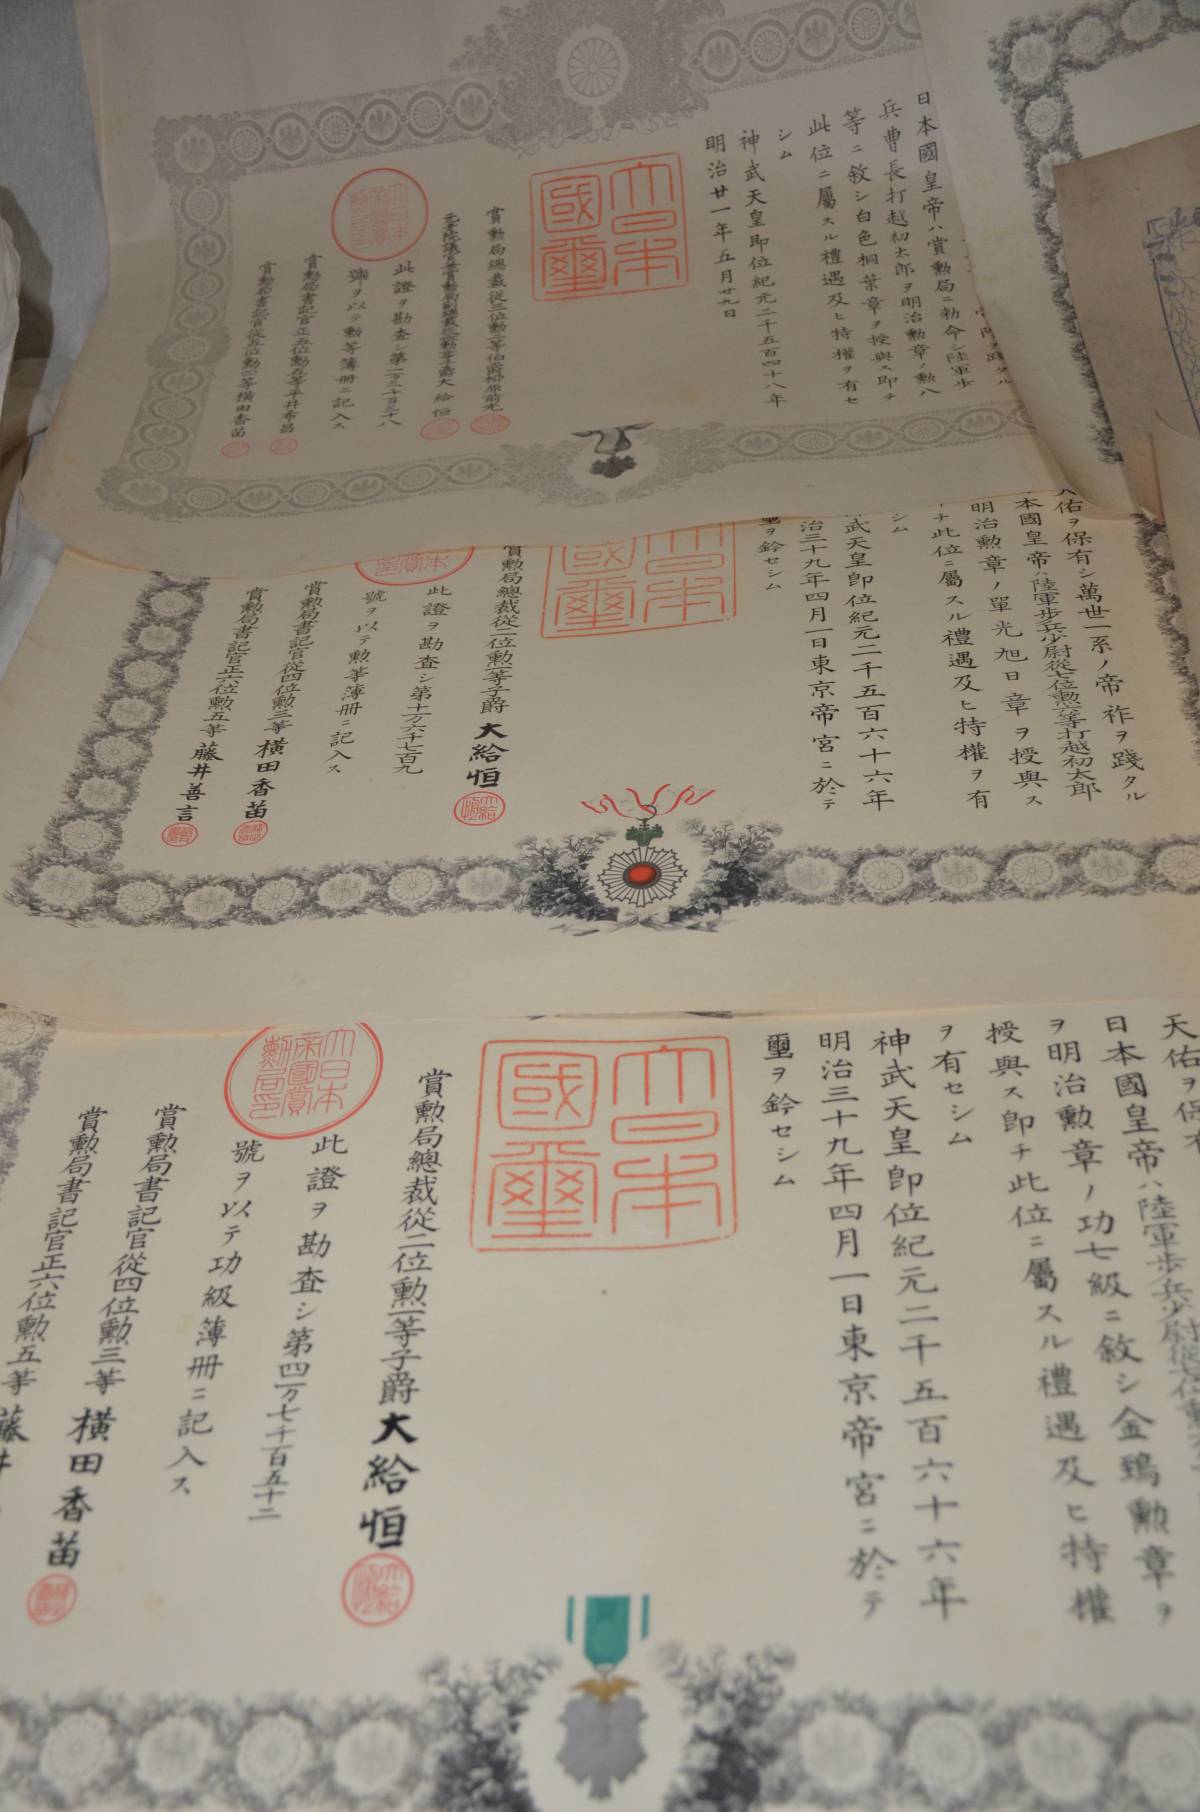 日本國皇帝ハ賞勲局ニ勅命シ陸軍歩
兵曹長打越初太郎ヲ明治勲章ノ勲八
等ニ敘シ白色桐葉章ヲ授與ス即チ
此位ニ屬スル禮遇及ヒ特權ヲ有セ
シム
神武天皇即位紀元二千五百四十八年
明治廿一年五月廿九日
大日本
國璽
賞勲局總裁從三位勲一等伯爵柳原前光
大給恒
此證ヲ勘査シ第一万三千百三十八
號ヲ以テ勲等簿冊ニ記入ス
賞勲局書記官正五位勲五等平井希昌
賞勲局書記官從五位勲六等橫田香苗
佑ヲ保有シ萬世一系ノ帝祚ヲ踐タル
本國皇帝ハ陸軍歩兵少尉從七位勲六等打越初太郎
明治勲章ノ單光旭日章ヲ授與ス
チ此位ニ屬スル禮遇及ヒ特權ヲ有
シム
武天皇即位紀元二千五百六十六年
治三十九年四月一日東京帝宮ニ於テ
璽ヲ鈐セシム
賞勲局總裁從二位勲一等子爵大給恒
此證ヲ勘査シ第十万六千七百九
號ヲ以テ勲等簿冊ニ記入ス
賞勲局書記官從四位勲三等橫田香苗
賞勲局書記官正六位勲五等藤井善言
天佑ヲ保有
日本國皇帝ハ陸軍歩兵少尉從七位勲六等
ヲ明治勲章ノ功七級ニ敘シ金鵄勲章ヲ
授與ス即チ此位ニ屬スル禮遇及ヒ特權
ヲ有セシム
神武天皇即位紀元二千五百六十六年
明治三十九年四月一日東京帝宮ニ於テ
璽ヲ鈐セシム
大日本
國璽
賞勲局總裁從二位勲一等子爵大給恒
此證ヲ勘査シ第四万七千百五十二
號ヲ以テ功級簿冊ニ記入ス
大日本
帝國賞
勲局印
賞勲局書記官從四位勲三等橫田香苗
賞勲局書記官正六位勲五等藤井